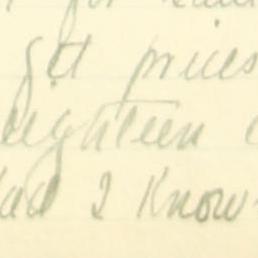 for
get prices
eighteen
Had I Know